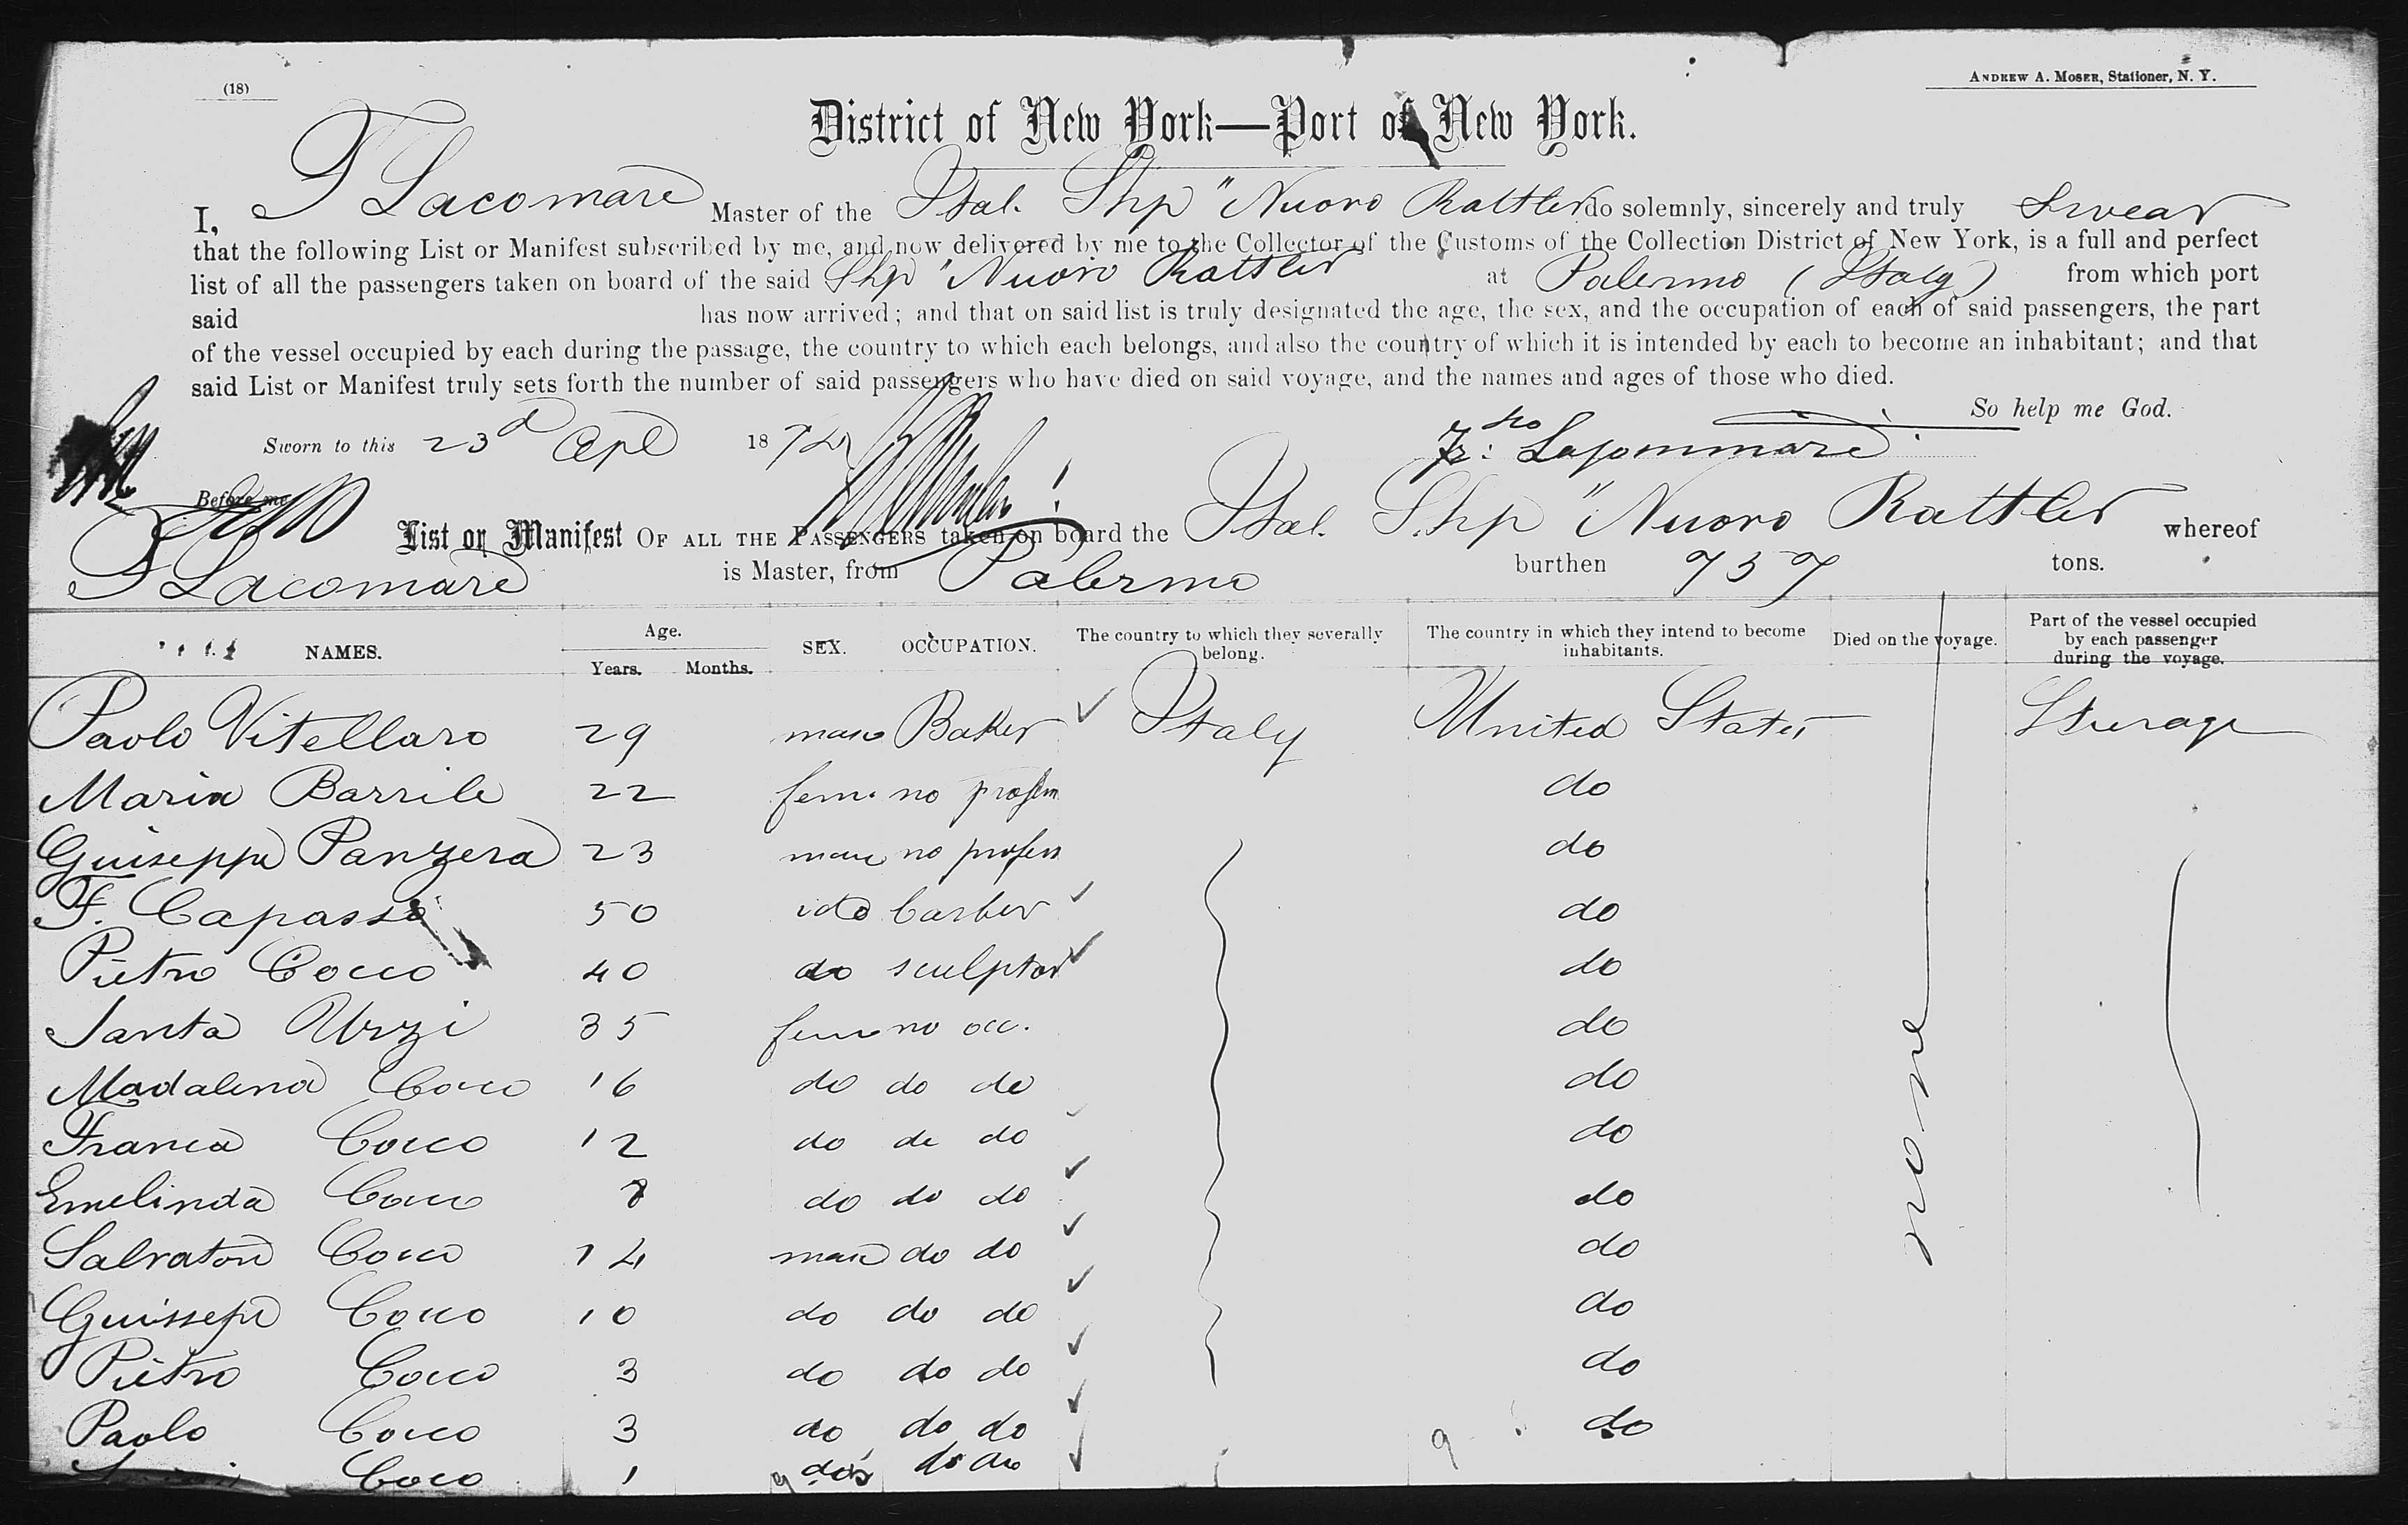 (18)
ANDREW A. MOSER, Stationer, N. Y.
District of New York—Port of New York.
I, F Lacomare Master of the Ital. Shp "Nuovo Rattler do solemnly, sincerely and truly Swear
that the following List or Manifest subscribed by me, and now delivered by me to the Collector of the Customs of the Collection District of New York, is a full and perfect
list of all the passengers taken on board of the said Shp "Nuovo Rattler at Palermo (Italy) from which port
said has now arrived; and that on said list is truly designated the age, the sex, and the occupation of each of said passengers, the part
of the vessel occupied by each during the passage, the country to which each belongs, and also the country of which it is intended by each to become an inhabitant; and that
said List or Manifest truly sets forth the number of said passengers who have died on said voyage, and the names and ages of those who died.
So help me God.
Sworn to this 23d Apl 1872
Before me
List or Manifest OF ALL THE PASSENGERS taken on board the Ital. Shp "Nuovo Rattler whereof
F Lacomare is Master, from Palermo burthen 757 tons.
NAMES. Age. Years. Months. SEX. OCCUPATION. The country to which they severally belong. The country in which they intend to become inhabitants. Died on the voyage. Part of the vessel occupied by each passenger during the voyage.
Paolo Vitellaro 29 masc Baker Italy United States Sterage
Maria Barrile 22 fem. no profem do
Guiseppe Panzera 23 masc no profess do
F. Capasso 50 ido barber do
Pietro Cocco 40 do sculptor do
Santa Urzi 35 fem no occ. do
Madalena Cocco 16 do do do do
Franca Cocco 12 do do do do
Emelinda Cocco 8 do do do do
none
Salvatore Cocco 14 masc do do do
Guissepe Cocco 10 do do do do
Pietro Cocco 3 do do do do
Paolo Cocco 3 do do do 9 do
Cocco 1 9 do do do